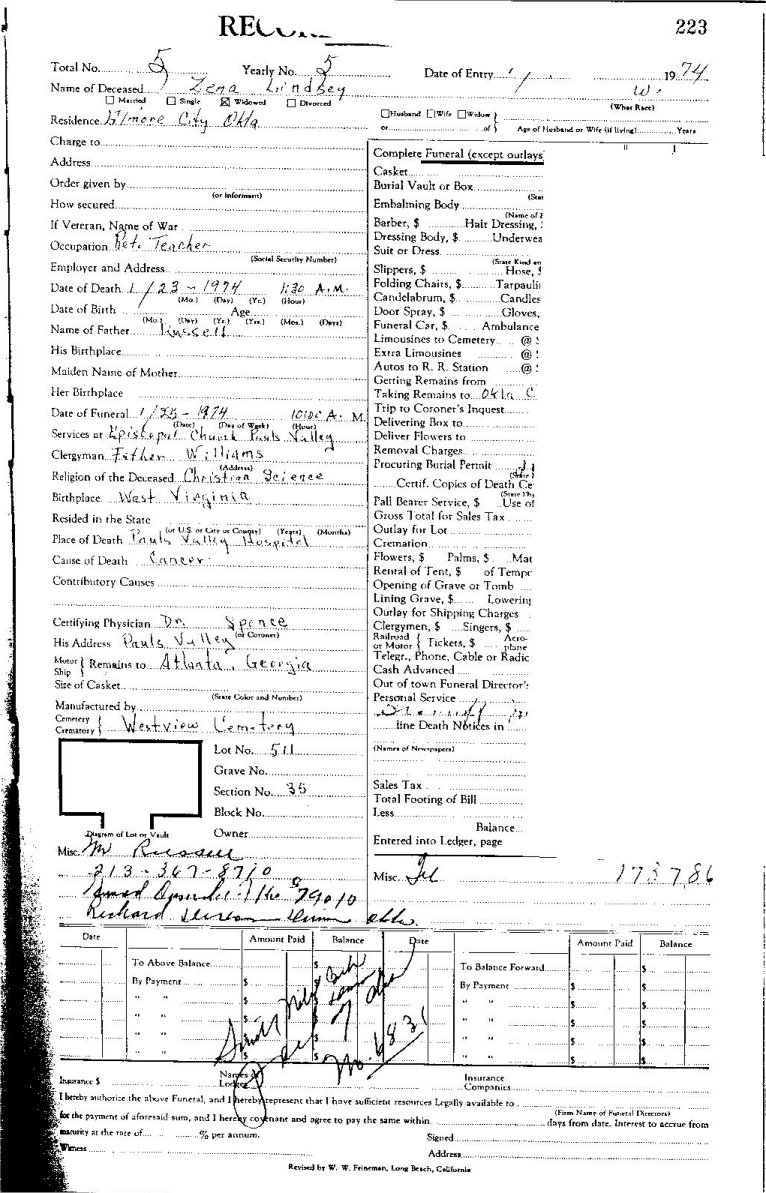 RECORD
223
Total No. 5 Yearly No. 5 Date of Entry 1/ 1974
Name of Deceased Zena Lindsey W.
☐ Married ☐ Single ☒ Widowed ☐ Divorced (What Race)
Residence Elmore City Okla ☐Husband ☐Wife ☐Widow
or of Age of Husband or Wife (if living) Years
Charge to
Address
Order given by
(or Informant)
How secured
If Veteran, Name of War
Occupation Ret. Teacher
(Social Security Number)
Employer and Address
Date of Death 1/23-1974 1:30 A.M.
(Mo.) (Day) (Yr.) (Hour)
Date of Birth Age
(Mo.) (Day) (Yr.) (Yrs.) (Mos.) (Days)
Name of Father Russell
His Birthplace
Maiden Name of Mother
Her Birthplace
Date of Funeral 1/25-1974 10:00 A. M
(Date) (Day of Week) (Hour)
Services at Episcopal Church Pauls Valley
Clergyman Father Williams
(Address)
Religion of the Deceased Christian Science
Birthplace West Virginia
Resided in the State
(or U.S. or City or County) (Years) (Months)
Place of Death Pauls Valley Hospital
Cause of Death Cancer
Contributory Causes
Certifying Physician Dr. Spence
(or Coroner)
His Address Pauls Valley
Motor Ship Remains to Atlanta, Georgia
Size of Casket
(State Color and Number)
Manufactured by
Cemetery Crematory Westview Cemetery
Lot No. 511
Grave No.
Section No. 35
Block No.
Diagram of Lot or Vault Owner
Misc. M Russell
213-367-8710
79010
Richard
Complete Funeral (except outlays
Casket
Burial Vault or Box
(Stat
Embalming Body
(Name of
Barber, $ Hair Dressing,
Dressing Body, $ Underwea
Suit or Dress
(State Kind an
Slippers, $ Hose, $
Folding Chairs, $ Tarpauli
Candelabrum, $ Candles
Door Spray, $ Gloves,
Funeral Car, $ Ambulance
Limousines to Cemetery @
Extra Limousines @
Autos to R. R. Station @
Getting Remains from
Taking Remains to Okla C
Trip to Coroner's Inquest
Delivering Box to
Deliver Flowers to
Removal Charges
Procuring Burial Permit
(State
Certif. Copies of Death Ce
(State Wh
Pall Bearer Service, $ Use of
Gross Total for Sales Tax
Outlay for Lot
Cremation
Flowers, $ Palms, $ Mat
Rental of Tent, $ of Tempr
Opening of Grave or Tomb
Lining Grave, $ Lowering
Outlay for Shipping Charges
Clergymen, $ Singers, $
Railroad or Motor Tickets, $ Aero-plane
Telegr., Phone, Cable or Radic
Cash Advanced
Out of town Funeral Director's
Personal Service
line Death Notices in
(Names of Newspapers)
Sales Tax
Total Footing of Bill
Less
Balance
Entered into Ledger, page
Misc. 1737.86
Date Amount Paid Balance Date Amount Paid Balance
To Above Balance $ To Balance Forward $
By Payment $ $ By Payment $ $
" " $ $ " " $ $
" " $ $ " " $ $
" " $ $ " " $ $
" " $ $ " " $ $
No. 6831
Insurance $ Names Insurance Companies
I hereby authorize the above Funeral, and I hereby represent that I have sufficient resources Legally available to
(Firm Name of Funeral Directors)
for the payment of aforesaid sum, and I hereby covenant and agree to pay the same within days from date. Interest to accrue from
maturity at the rate of % per annum. Signed
Witness Address
Revised by W. W. Feineman, Long Beach, California